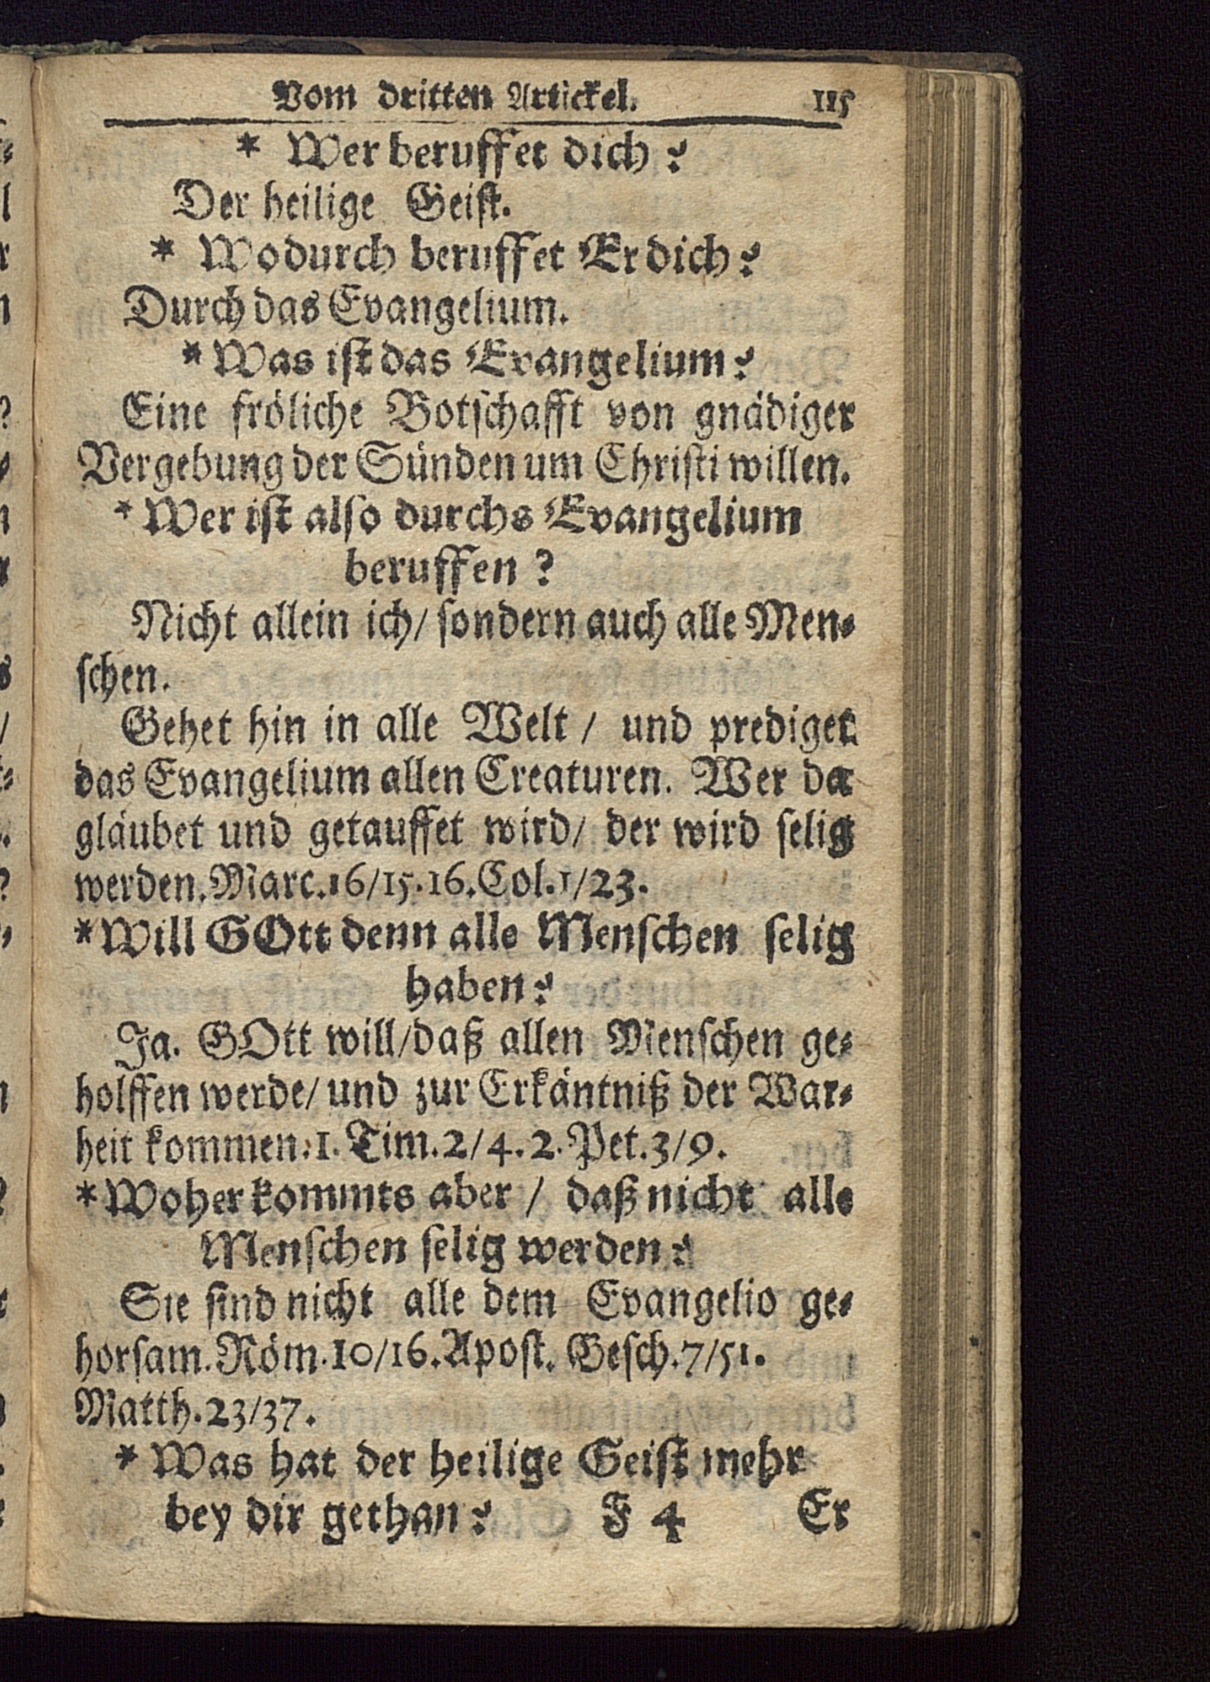 Vom dritten Artickel. 115
* Wer beruffet dich?
Der heilige Geist.
* Wodurch beruffet Er dich?
Durch das Evangelium.
* Was ist das Evangelium?
Eine fröliche Botschafft von gnädiger
Vergebung der Sünden um Christi willen.
* Wer ist also durchs Evangelium
beruffen?
Nicht allein ich/ sondern auch alle Men-
schen.
Gehet hin in alle Welt / und prediget
das Evangelium allen Creaturen. Wer da
gläubet und getauffet wird/ der wird selig
werden. Marc. 16/15. 16. Col. 1/23.
* Will GOtt denn alle Menschen selig
haben?
Ja. GOtt will/ daß allen Menschen ge-
holffen werde/ und zur Erkäntniß der War-
heit kommen. 1. Tim. 2/4. 2. Pet. 3/9.
* Woher kommts aber / daß nicht alle
Menschen selig werden?
Sie sind nicht alle dem Evangelio ge-
horsam. Röm. 10/16. Apost. Gesch. 7/51.
Matth. 23/37.
* Was hat der heilige Geist mehr
bey dir gethan? F 4 Er